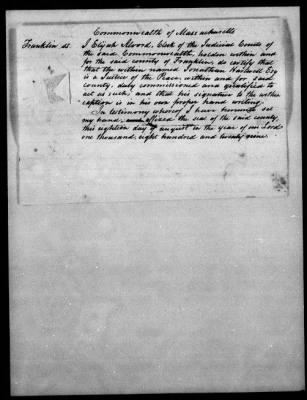 Commonwealth of Massachusetts
Franklin ss. I Elijah Alvord, Clerk of the Judicial Courts of
the said Commonwealth holden within and
for the said county of Franklin do certify that
that the within named Jonathan Hartwell Esq
is a Justice of the Peace within and for said
county, duly commissioned and qualified to
act as such, and that his signature to the within
caption is in his own proper hand writing.
In testimony whereof I have hereunto set
my hand, and affixed the seal of the said county,
this eighteen day of august in the year of our Lord
one thousand, eight hundred and twenty nine